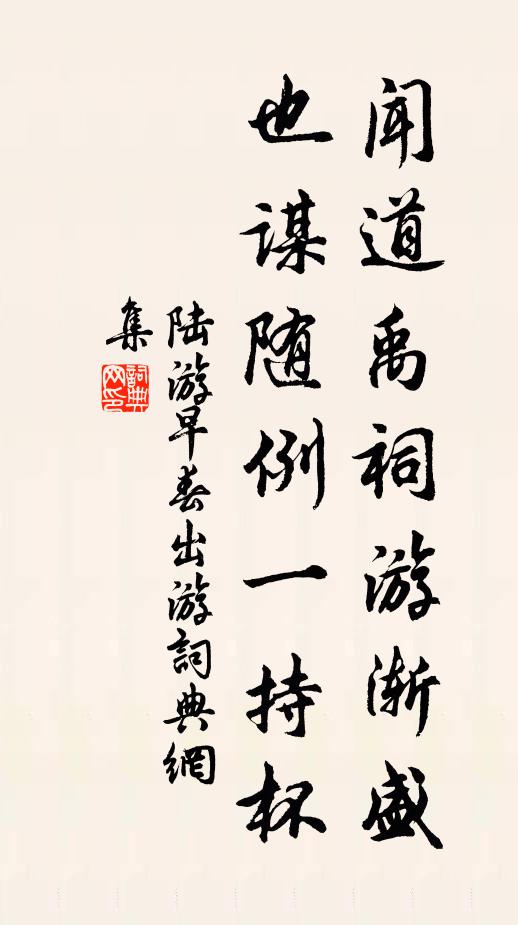 闻道禹祠游渐盛
也谋随例一持杯
陆游早春出游詞典網
集
詞典网印